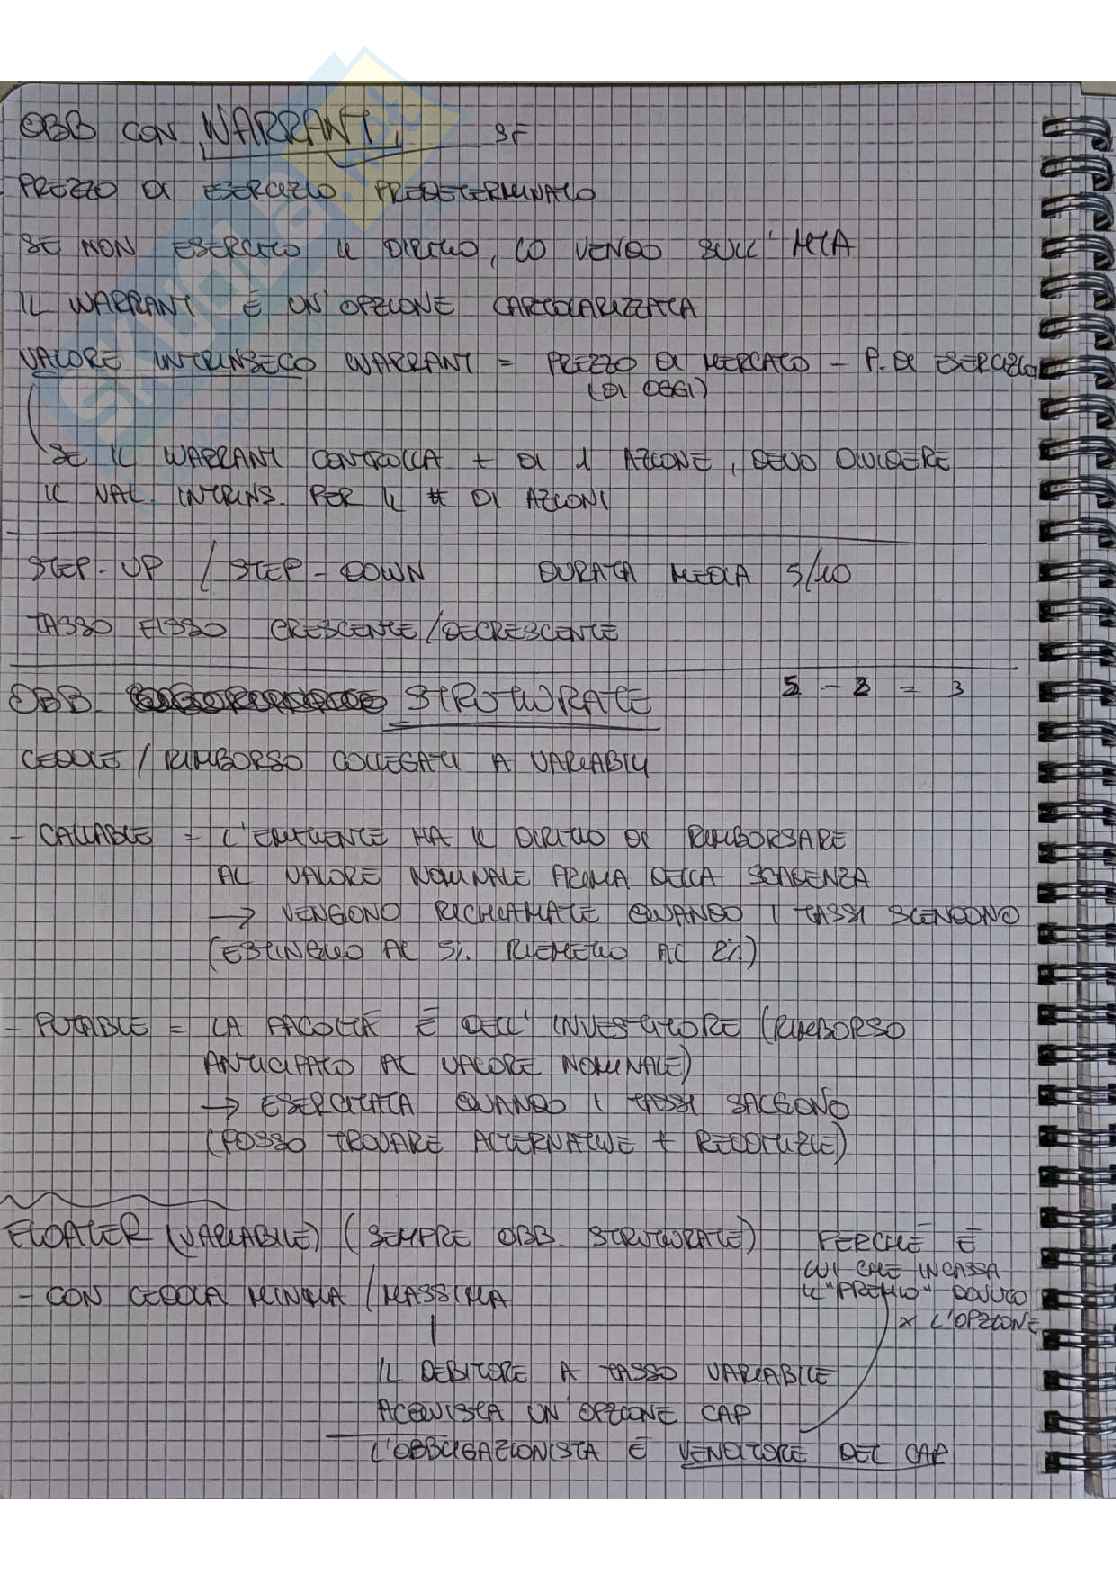 OBB CON WARRANT SF
PREZZO DI ESERCIZIO PREDETERMINATO
SE NON ESERCITO IL DIRITTO, LO VENDO SULL' MTA
IL WARRANT È UN'OPZIONE CARTOLARIZZATA
VALORE INTRINSECO WARRANT = PREZZO DI MERCATO - P. DI ESERCIZIO
(DI OGGI)
SE IL WARRANT CONTROLLA + DI 1 AZIONE, DEVO DIVIDERE
IL VAL. INTRINS. PER IL # DI AZIONI
STEP-UP / STEP-DOWN DURATA MEDIA 5/10
TASSO FISSO CRESCENTE/DECRESCENTE
OBB STRUTTURATE 5 - 2 = 3
CEDOLE / RIMBORSO COLLEGATI A VARIABILI
- CALLABLE = L'EMITTENTE HA IL DIRITTO DI RIMBORSARE
AL VALORE NOMINALE PRIMA DELLA SCADENZA
→ VENGONO RICHIAMATE QUANDO I TASSI SCENDONO
(ESTINGUO AL 5%. RIEMETTO AL 2%)
- PUTABLE = LA FACOLTÀ È DELL' INVESTITORE (RIMBORSO
ANTICIPATO AL VALORE NOMINALE)
→ ESERCITATA QUANDO I TASSI SALGONO
(POSSO TROVARE ALTERNATIVE + REDDITIZIE)
FLOATER (VARIABILE) (SEMPRE OBB. STRUTTURATE)
- CON CEDOLA MINIMA / MASSIMA
IL DEBITORE A TASSO VARIABILE
ACQUISTA UN'OPZIONE CAP
L'OBBLIGAZIONISTA È VENDITORE DEL CAP
PERCHÈ È
LUI CHE INCASSA
IL "PREMIO" DOVUTO
X L'OPZIONE